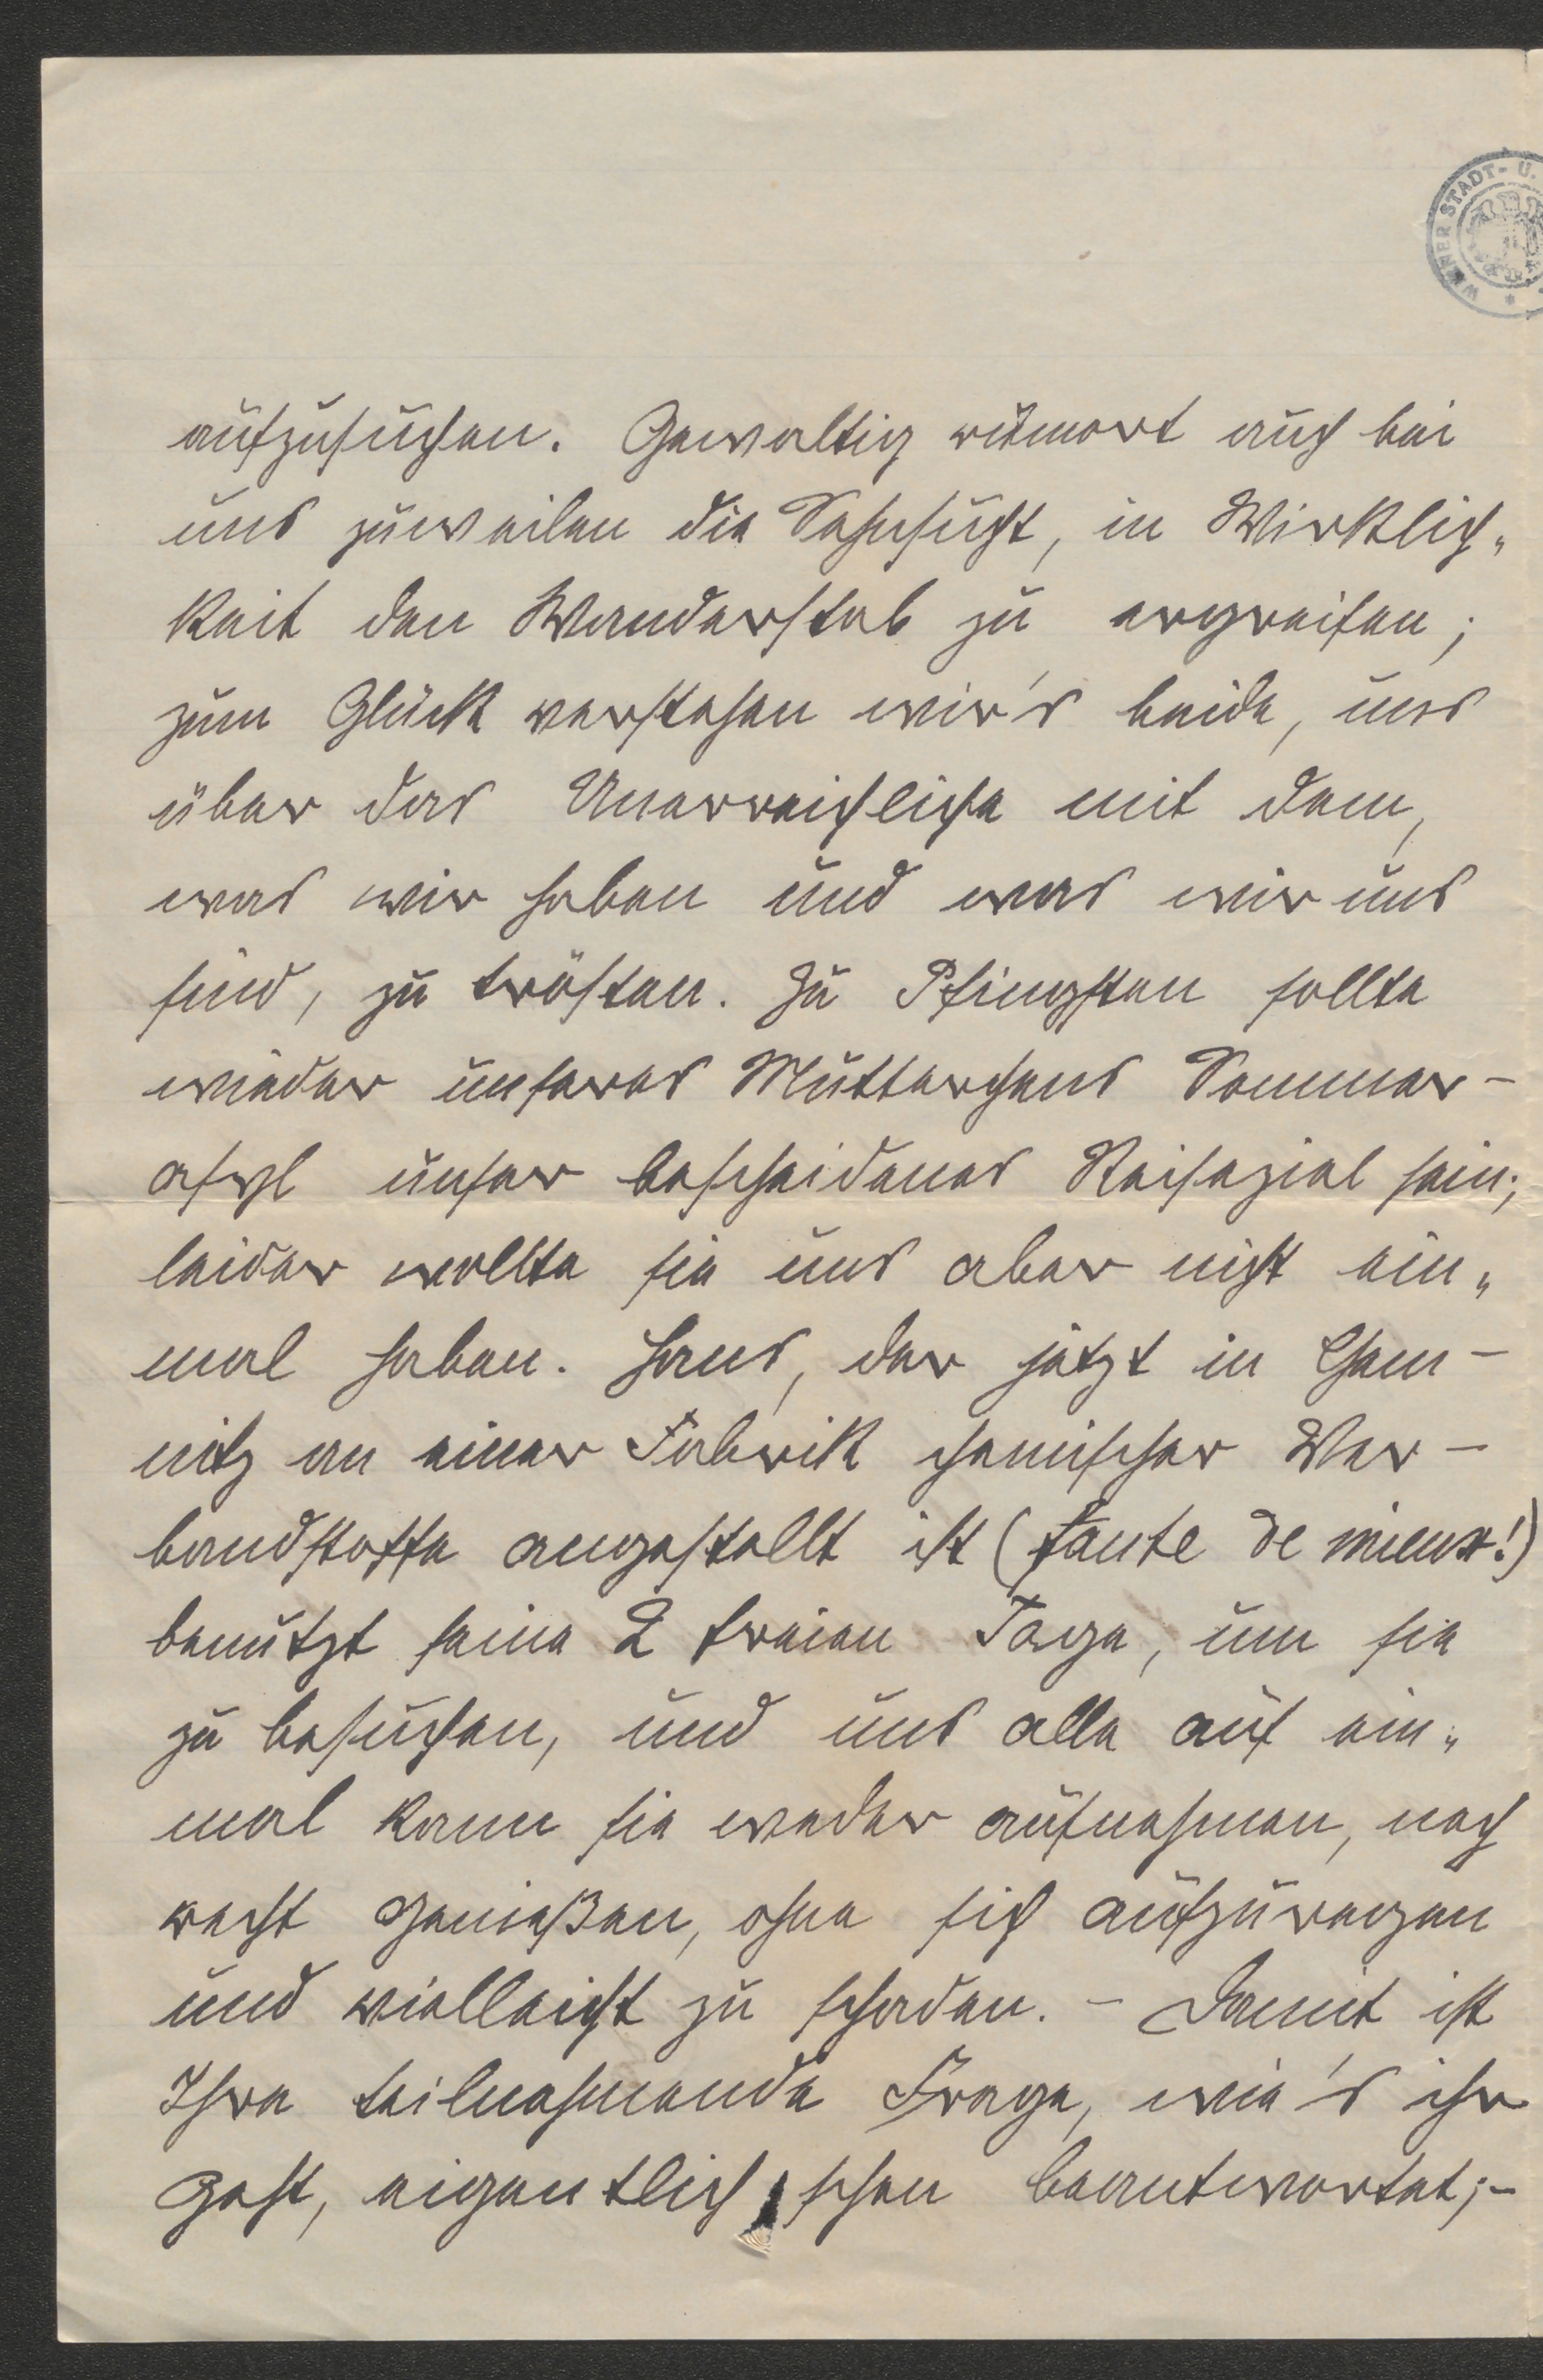 WIENER STADT- U.
aufzusuchen. Gewaltig rumort auch bei
uns zuweilen die Sehnsucht, in Wirklich„
keit den Wanderstab zu ergreifen;
zum Glück verstehen wir's beide, uns
über das Unerreichliche mit dem,
was wir haben und was wir uns
sind, zu trösten. Zu Pfingsten sollte
wieder unseres Mütterchens Sommer-
asyl unser bescheidenes Reiseziel sein;
leider wollte sie uns aber nicht ein„
mal haben. Hans, der jetzt in Chem-
nitz an einer Fabrik chemischer Ver-
bandstoffe angestellt ist (faute de mieux!)
benützt seine 2 freien Tage, um sie
zu besuchen, und uns alle auf ein„
mal kann sie weder aufnehmen, noch
recht genießen, ohne sich aufzuregen
und vielleicht zu schaden. - Damit ist
Ihre teilnehmende Frage, wie's ihr
geht, eigentlich schon beantwortet;-